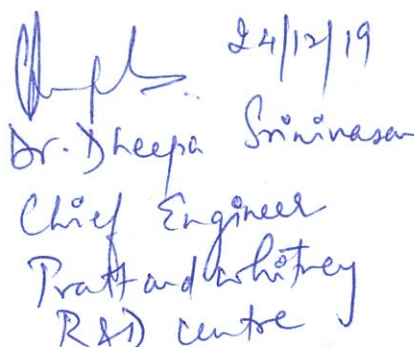 24/12/19
Dr. Dheepa Srinivasan
Chief Engineer
Pratt and whitney
R&D centre